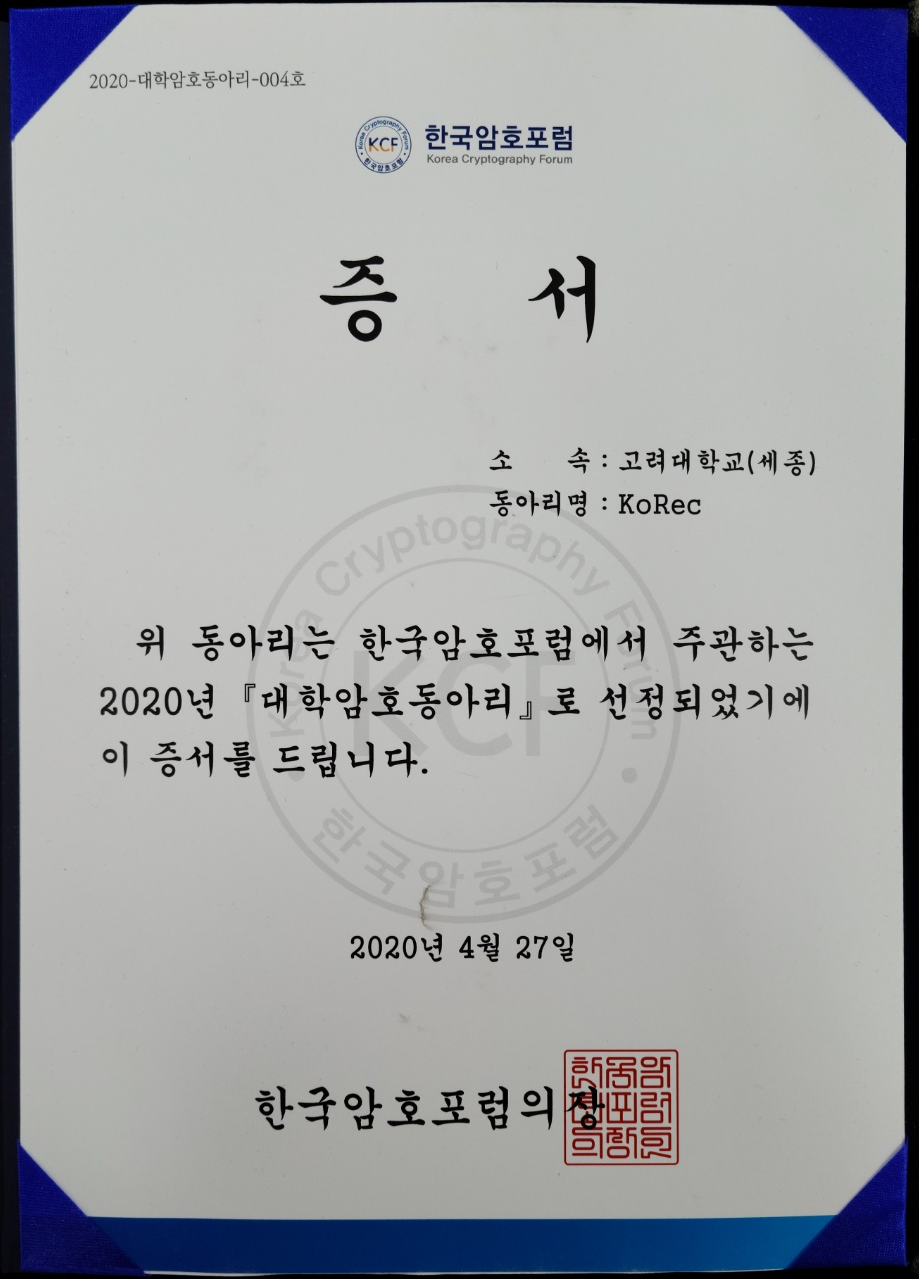 2020-대학암호동아리-004호
Korea Cryptography Forum
KCF
한국암호포럼
한국암호포럼
Korea Cryptography Forum
증 서
소 속 : 고려대학교(세종)
동아리명 : KoRec
위 동아리는 한국암호포럼에서 주관하는
2020년 『대학암호동아리』로 선정되었기에
이 증서를 드립니다.
Korea Cryptography Forum
KCF
한국암호포럼
2020년 4월 27일
한국암호포럼의장